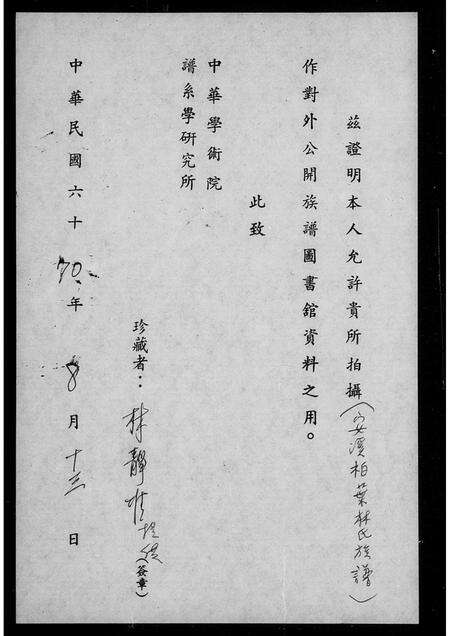 茲證明本人允許貴所拍攝(安溪柏葉林氏族譜)
作對外公開族譜圖書館資料之用。
此致
中華學術院
譜系學研究所
珍藏者：林靜 提供(簽章)
中華民國六十70年8月十三日